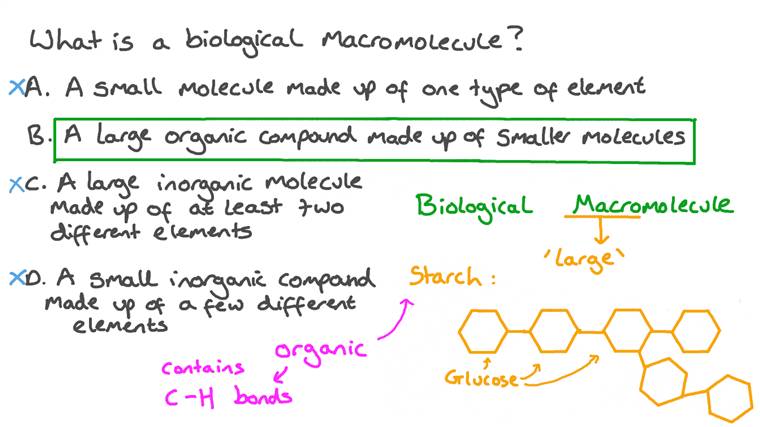 What is a biological Macromolecule?
×A. A small molecule made up of one type of element
B. A large organic compound made up of smaller molecules
×C. A large inorganic molecule
made up of at least two
different elements
Biological Macromolecule
'large'
×D. A small inorganic compound
made up of a few different
elements
Starch:
organic
contains
C-H bonds
Glucose